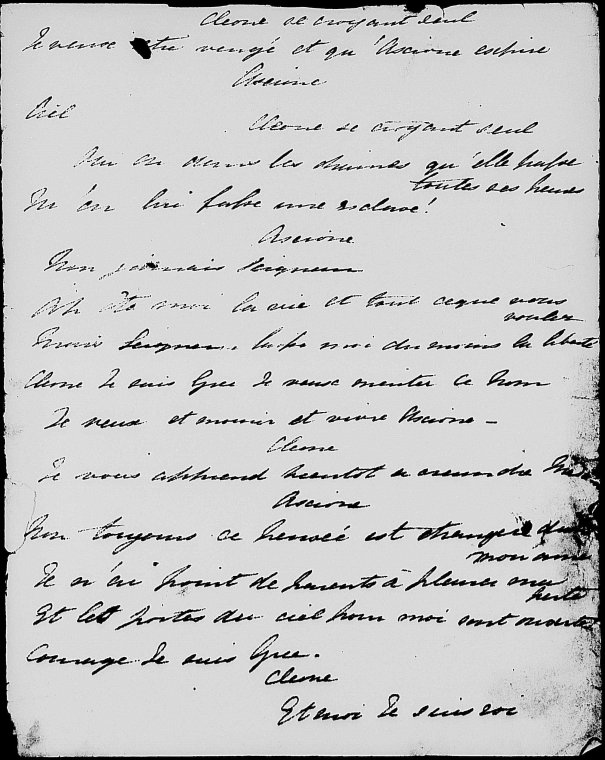 Cleone se croyant seul
Je veux être vengé et qu'Ascione expire
Ascione
Ciel
Cleone se croyant seul
les chaines qu'elle passe
toutes ses heures
qu'on lui fasse une esclave!
Ascione
Non jamais Seigneur
Ah ôte moi la vie et tout ceque vous
voulez
Mais Seigneur, laisse moi du moins la liberté
Cleone Je suis Grec Je veux meriter ce nom
Je veux et mourir et vivre Ascione -
Cleone
Je vous apprend bientot a craindre
Ascione
Non toujours ce penseé est etrangere dans
mon ame
Je n'ai point de parents à pleurer ma
perte
Et les portes du ciel pour moi sont ouvertes
Courage Je suis Grec.
Cleone
Et moi Je suis roi